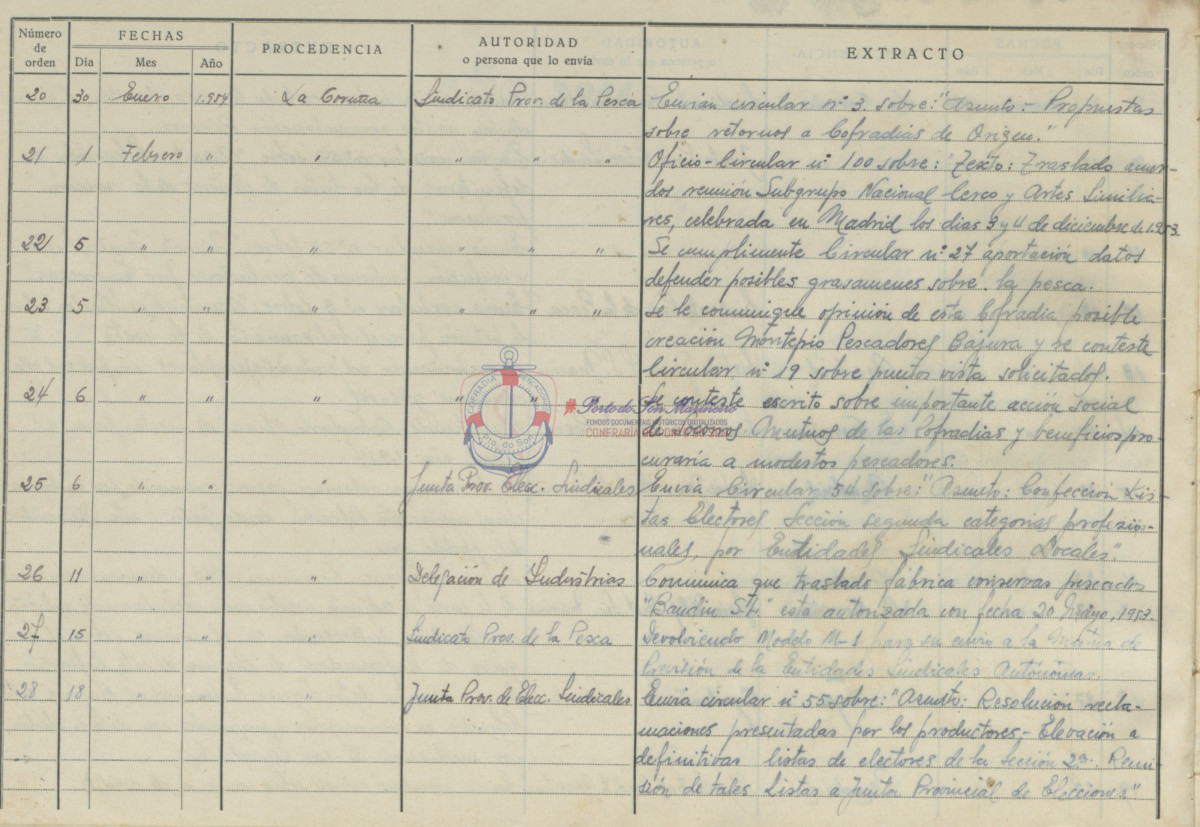 Número de orden FECHAS PROCEDENCIA AUTORIDAD o persona que lo envía EXTRACTO
Día Mes Año
20 30 Enero 1.954 La Coruña Sindicato Prov. de la Pesca Envian circular nº 3. sobre: "Asunto:- Propuestas
sobre retornos a Cofradias de Origen."
21 1 Febrero " " " " " Oficio-Circular nº 100 sobre: "Texto: Traslado acuer-
dos reunión Subgrupo Nacional Cerco y Artes Similia-
res, celebrada en Madrid los dias 3 y 4 de diciembre de 1.953.
22 5 " " " " " " Se cumplimente Circular nº 27 aportación datos
defender posibles gravamenes sobre la pesca.
23 5 " " " " " " Se le comunique opinión de esta Cofradia posible
creación Montepio Pescadores Bajura y se conteste
Circular nº 19 sobre puntos vista solicitados.
24 6 " " " " " " Se conteste escrito sobre importante acción social
de Socorros Mutuos de las Cofradias y beneficios pro-
curaria a modestos pescadores.
25 6 " " " Junta Prov. Elecc. Sindicales Envia Circular 54 sobre: "Asunto: Confección Lis-
tas Electores Sección segunda categorias profesio-
nales, por Entidades Sindicales Locales".
26 11 " " " Delegación de Industrias Comunica que traslado fábrica conservas pescados
"Bandin S.L." está autorizada con fecha 20 Mayo, 1953.
27 15 " " " Sindicato Prov. de la Pesca Devolviendo Modelo M-1 para su envio a la
Previsión de la Entidades Sindicales Autónomas.
28 18 " " " Junta Prov. de Elecc. Sindicales Envia circular nº 55 sobre: "Asunto: Resolución recla-
maciones presentadas por los productores,- Elevación a
definitivas listas de electores de la Sección 2ª. Remi-
sión de tales Listas a Junta Provincial de Elecciones"
COFRADIA PESCADORES
Pto. do Son
Porto do Son Mariñeiro
FONDOS DOCUMENTAIS HISTÓRICOS DIGITALIZADOS
CONFRARÍA